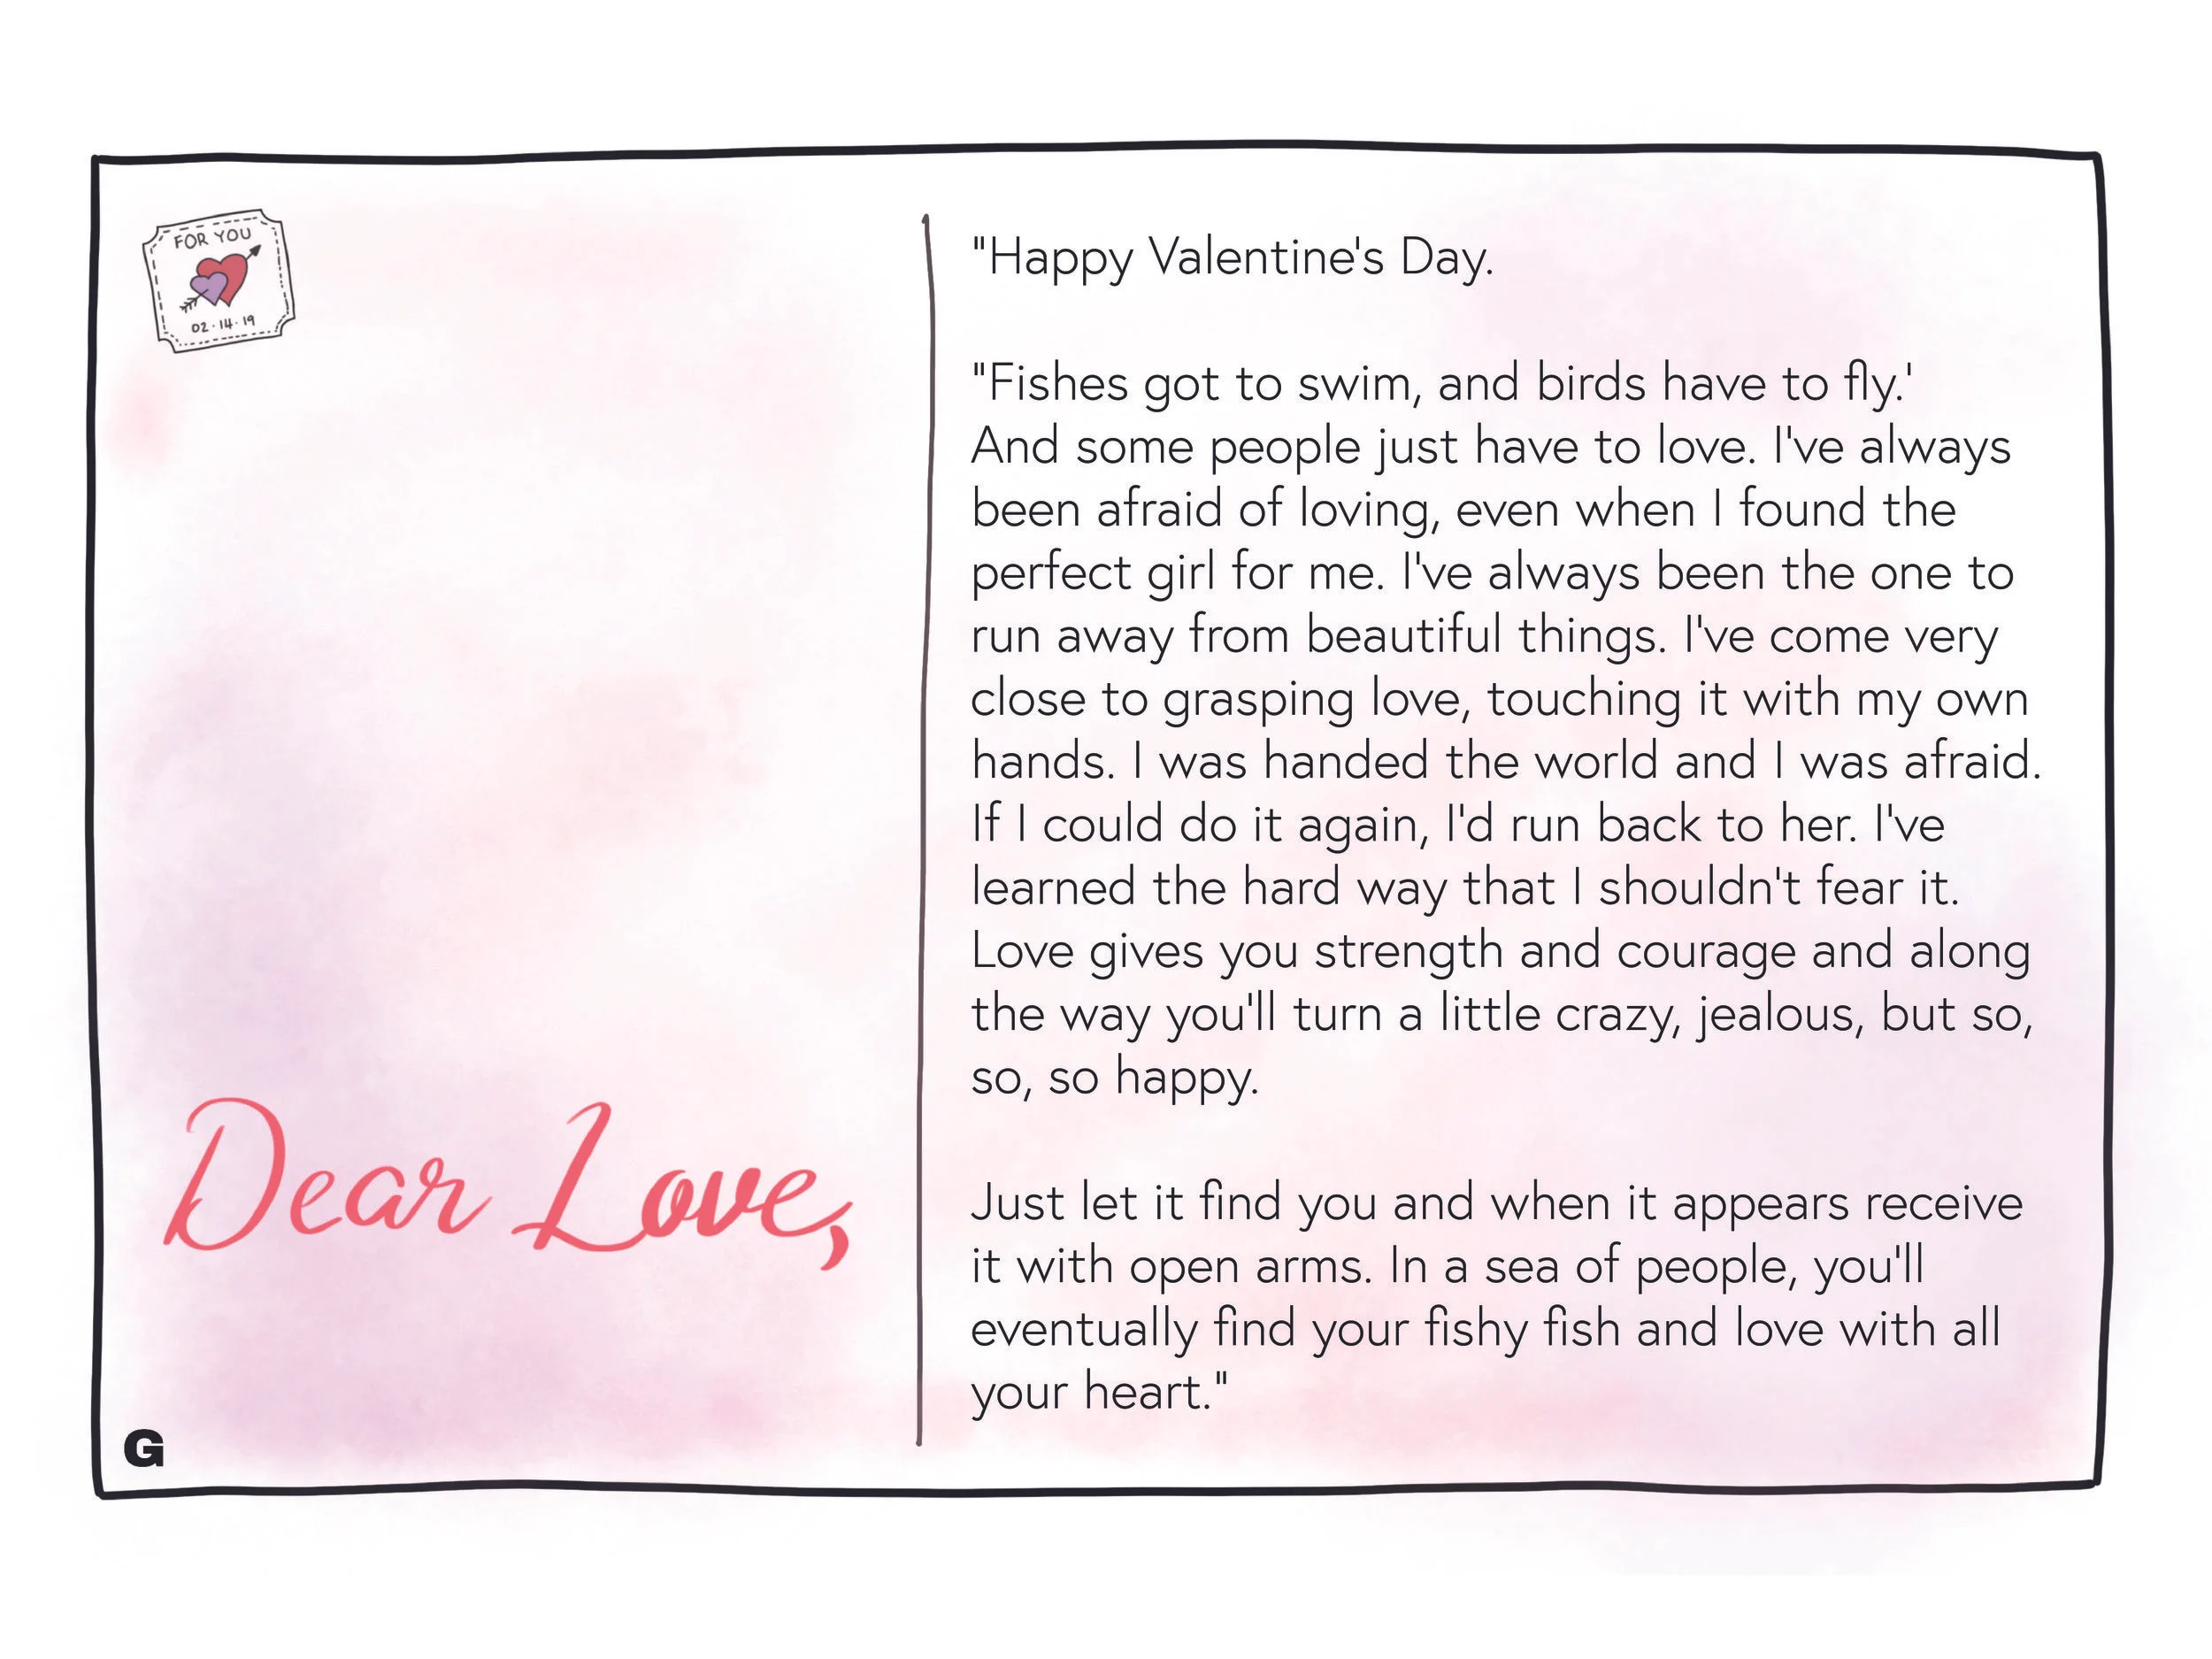 FOR YOU
02·14·19
Dear Love,
G
"Happy Valentine's Day.
"Fishes got to swim, and birds have to fly.'
And some people just have to love. I've always
been afraid of loving, even when I found the
perfect girl for me. I've always been the one to
run away from beautiful things. I've come very
close to grasping love, touching it with my own
hands. I was handed the world and I was afraid.
If I could do it again, I'd run back to her. I've
learned the hard way that I shouldn't fear it.
Love gives you strength and courage and along
the way you'll turn a little crazy, jealous, but so,
so, so happy.
Just let it find you and when it appears receive
it with open arms. In a sea of people, you'll
eventually find your fishy fish and love with all
your heart."